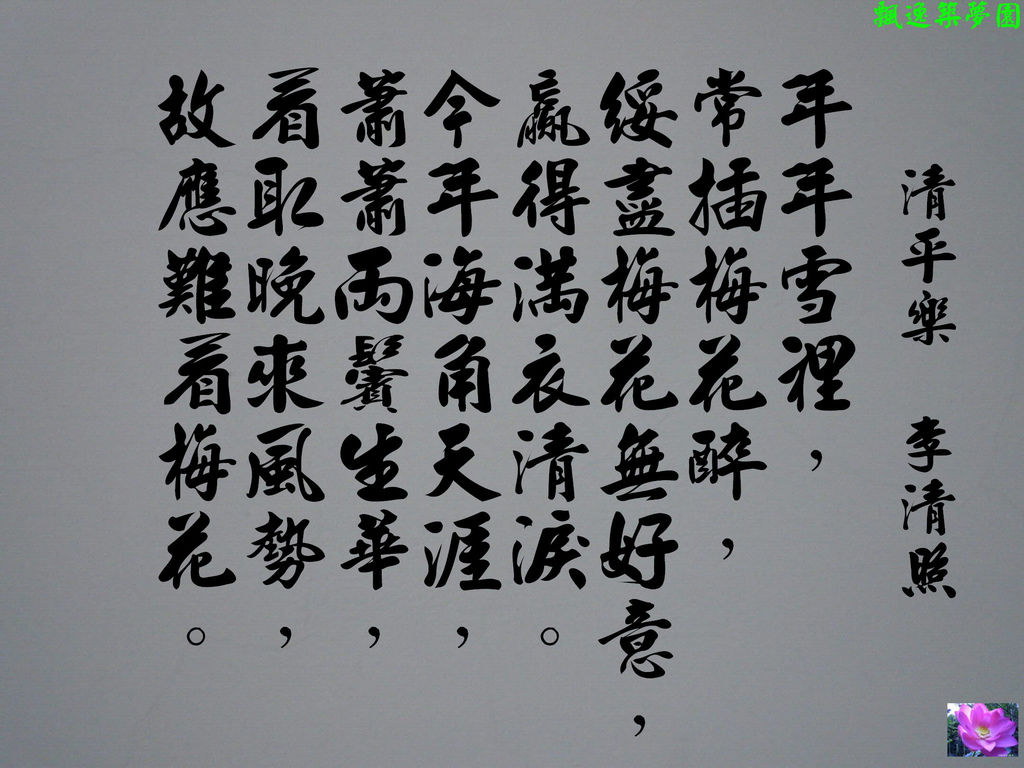 飄逸築夢園
清平樂 李清照
年年雪裡，
常插梅花醉，
綏盡梅花無好意，
贏得滿衣清淚。
今年海角天涯，
蕭蕭兩鬢生華，
看取晚來風勢，
故應難看梅花。